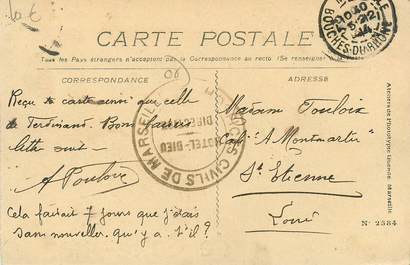 CARTE POSTALE
Tous les Pays étrangers n'acceptent pas la Correspondance au recto (Se renseigner
CORRESPONDANCE
ADRESSE
Reçu ta carte ainsi que celle
de Ferdinand. Bons baisers
lettre suit
A Pouloix
Cela faisait 7 jours que j'étais
sans nouvelles. qu'y a t'il?
Madame
Café "A Montmartre"
St Etienne
Loire
HOSPICES CIVILS DE MARSEILLE
HOTEL-DIEU
BOUCHES-DU-RHONE
10 40
Marseille
N° 2584
06